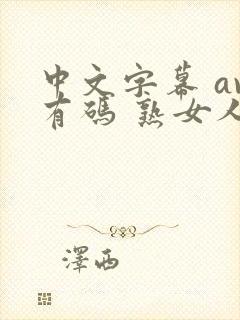 中文字幕 av
有碼 熟女人
澤西